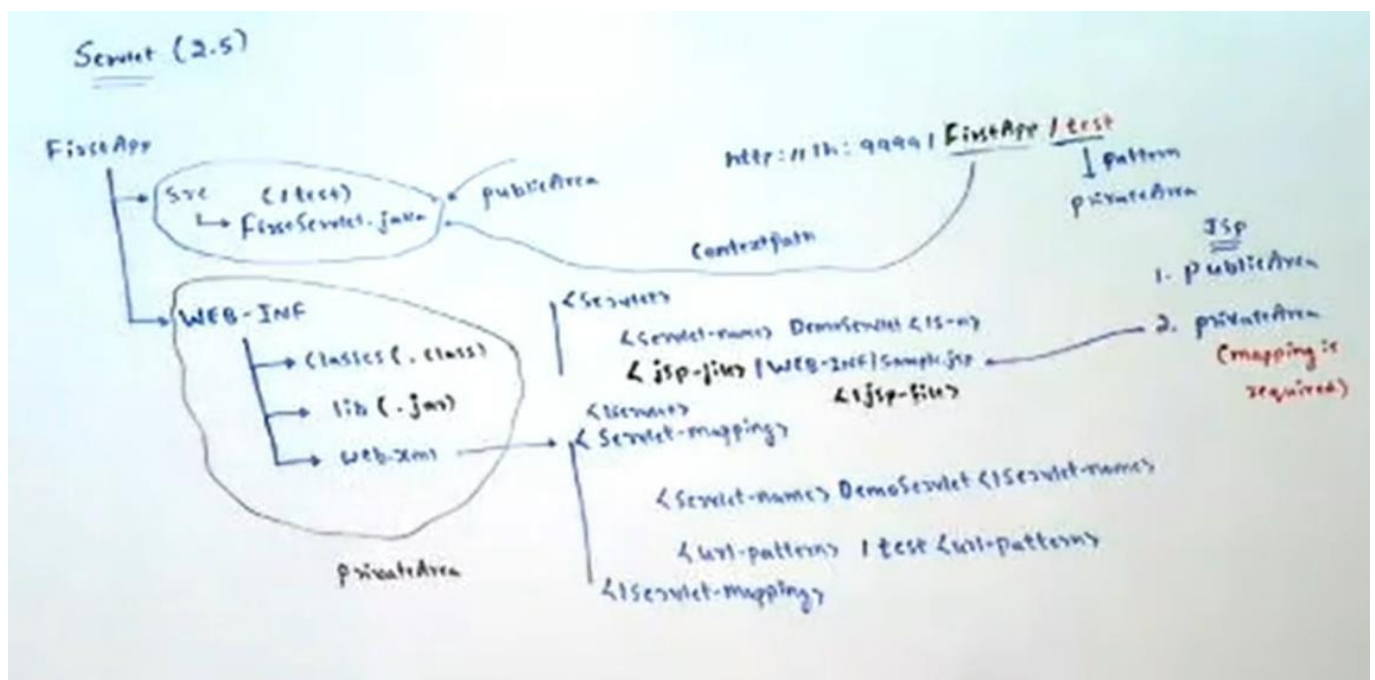 Servlet (2.5)
FirstApp
src (/test)
FirstServlet.java
publicArea
http://lh:9999/FirstApp/test
pattern
privateArea
ContextPath
Jsp
1. publicArea
2. privateArea
(mapping is
required)
WEB-INF
classes (.class)
lib (.jar)
web.xml
privateArea
<servlet>
<servlet-name> DemoServlet </s-n>
<jsp-file> /WEB-INF/Sample.jsp
</jsp-file>
</servlet>
<servlet-mapping>
<servlet-name> DemoServlet </servlet-name>
<url-pattern> /test <url-pattern>
</servlet-mapping>